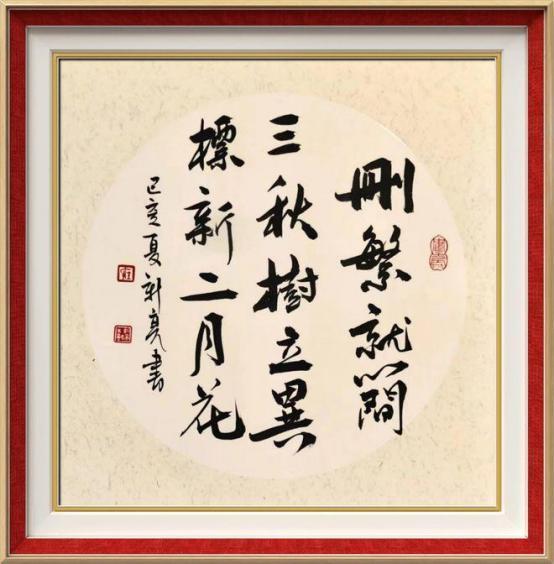 刪繁就簡
三秋樹立異
標新二月花
己亥夏新亮書